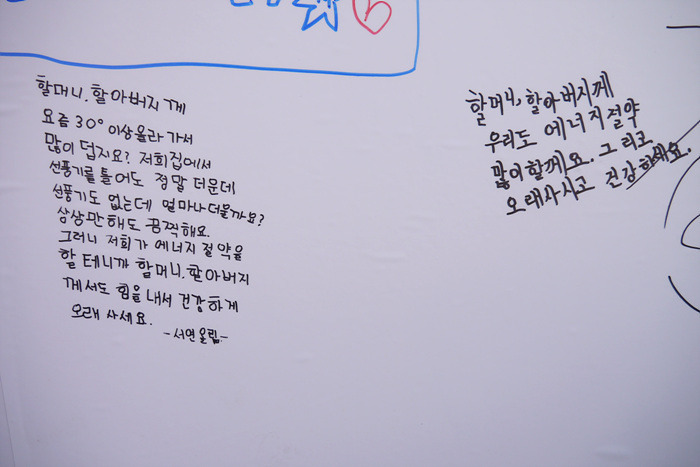 할머니, 할아버지께
요즘 30° 이상 올라가서
많이 덥지요? 저희집에서
선풍기를 틀어도 정말 더운데
선풍기도 없는데 얼마나 더울까요?
상상만해도 끔찍해요.
그러니 저희가 에너지 절약을
할 테니까 할머니, 할아버지
께서도 힘을 내서 건강하게
오래 사세요.
-서연올림-
할머니, 할아버지께
우리도 에너지절약
많이할께요. 그리고
오래사시고 건강하세요.